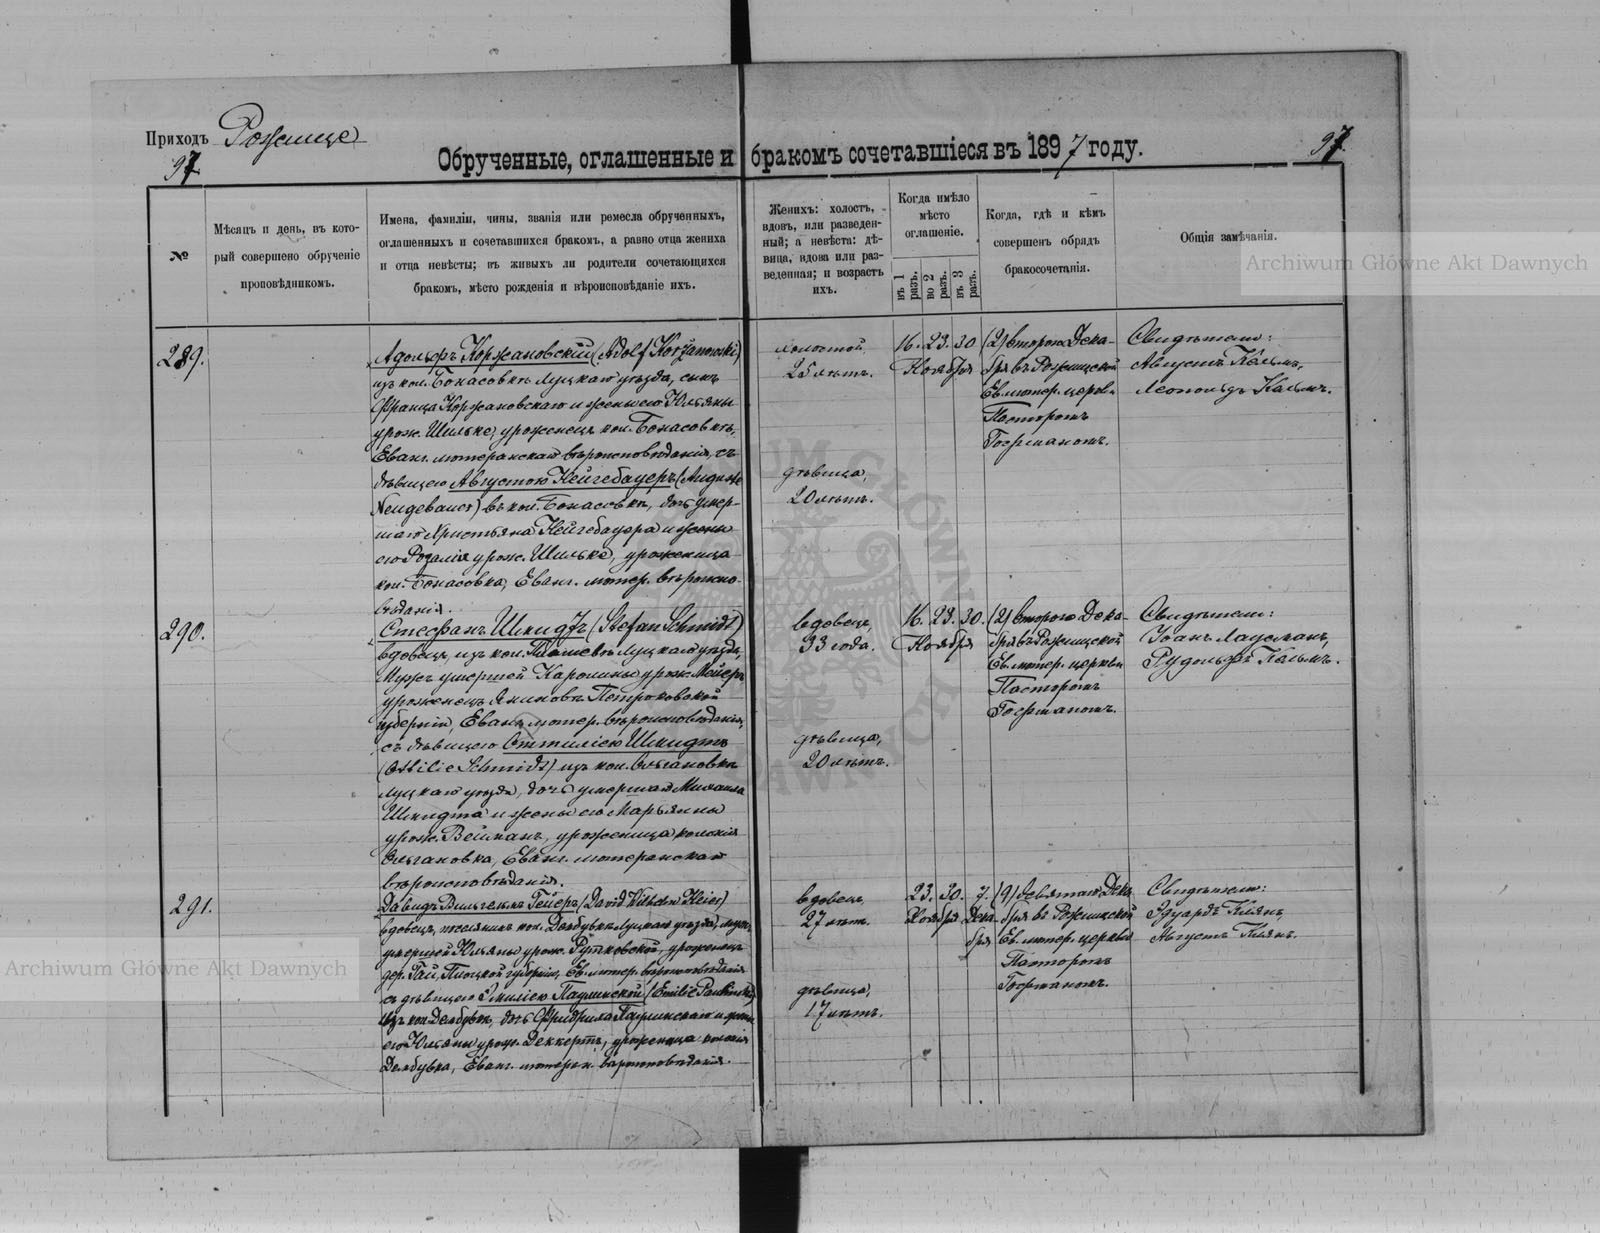 Приходъ Рожище
97
Обрученные, оглашенные и бракомъ сочетавшіеся въ 1897 году.
97.
№
Мѣсяцъ и день, въ кото-
рый совершено обрученіе
проповѣдникомъ.
Имена, фамиліи, чины, званія или ремесла обрученныхъ,
оглашенныхъ и сочетавшихся бракомъ, а равно отца жениха
и отца невѣсты; въ живыхъ ли родители сочетающихся
бракомъ, мѣсто рожденія и вѣроисповѣданіе ихъ.
Женихъ: холостъ,
вдовъ, или разведен-
ный; а невѣста: дѣ-
вица, вдова или раз-
веденная; и возрастъ
ихъ.
Когда имѣло
мѣсто
оглашеніе.
въ 1 разъ.
во 2 разъ.
въ 3 разъ.
Когда, гдѣ и кѣмъ
совершенъ обрядъ
бракосочетанія.
Общія замѣчанія.
289.
Адольфъ Коржановскій (Adolf Korżanowski)
изъ кол. Боžасовкѣ Луцкаго уѣзда, сынъ
Франца Коржановскаго и жены его Юльяны
урож. Шильке, уроженецъ кол.
Еванг. лютеранскаго вѣроисповѣданія, съ
дѣвицею Августою Нейгебауеръ (Auguste
Neugebauer) въ кол. дочь умер-
шаго Христьяна Нейгебауера и жены
его Розалія урож. Шильке, уроженица
кол. Еванг. лютер. вѣроиспо-
вѣданія.
холостой,
25 лѣтъ.
дѣвица,
20 лѣтъ.
16. 23. 30
Ноября
(2) второго Дека-
бря въ Рожищской
Ев. лютер. церкви
Пасторомъ
Госрманомъ.
Свидѣтели:
Августъ Кальмъ,
Леопольдъ Кальмъ.
290.
Стефанъ Шмидъ (Stefan Schmidt)
вдовецъ, изъ кол. Луцкаго уѣзда,
мужъ умершей Каролины урож. Мейеръ
уроженецъ Яниновъ Петроковской
губерніи, Еванг. лютер. вѣроисповѣданія,
съ дѣвицею Оттиліею Шмидтъ
(Ottilie Schmidt) изъ кол. Ольгановкѣ
Луцкаго уѣзда, дочь умершаго Михаила
Шмидта и жены его Марьянны
урож. Вейманъ, уроженица колонія
Ольгановка, Еванг. лютеранскаго
вѣроисповѣданія.
вдовецъ,
33 года.
дѣвица,
20 лѣтъ.
16. 23. 30.
Ноября
(2) второго Дека-
бря въ Рожищской
Ев. лютер. церкви
Пасторомъ
Госрманомъ.
Свидѣтели:
Іоанъ Лаусманъ,
Рудольфъ Кальмъ.
291.
Давидъ Вильгельмъ Гейеръ (David Wilhelm Heier)
вдовецъ, поселянинъ кол. Дембувка Луцкаго уѣзда, мужъ
умершей Юльяны урож. Рутковской, уроженецъ
дер. Гай, Плоцкой губерніи, Ев. лютер. вѣроисповѣданія
съ дѣвицею Эмиліею Паулинской (Emilie Paulinska)
изъ кол. Дембувки, дочь Фридриха Паулинскаго и жены
его Юльяны урож. Деккертъ, уроженица колонія
Дембувка, Еванг. лютеран. вѣроисповѣданія.
вдовецъ,
27 лѣтъ.
дѣвица,
17 лѣтъ.
23. 30. 7.
Ноября Дека-
бря
(9) девятаго Дека-
бря въ Рожищской
Ев. лютер. церкви
Пасторомъ
Госрманомъ.
Свидѣтели:
Эдуардъ Кіянъ,
Августъ Кіянъ.
Archiwum Główne Akt Dawnych
Archiwum Główne Akt Dawnych